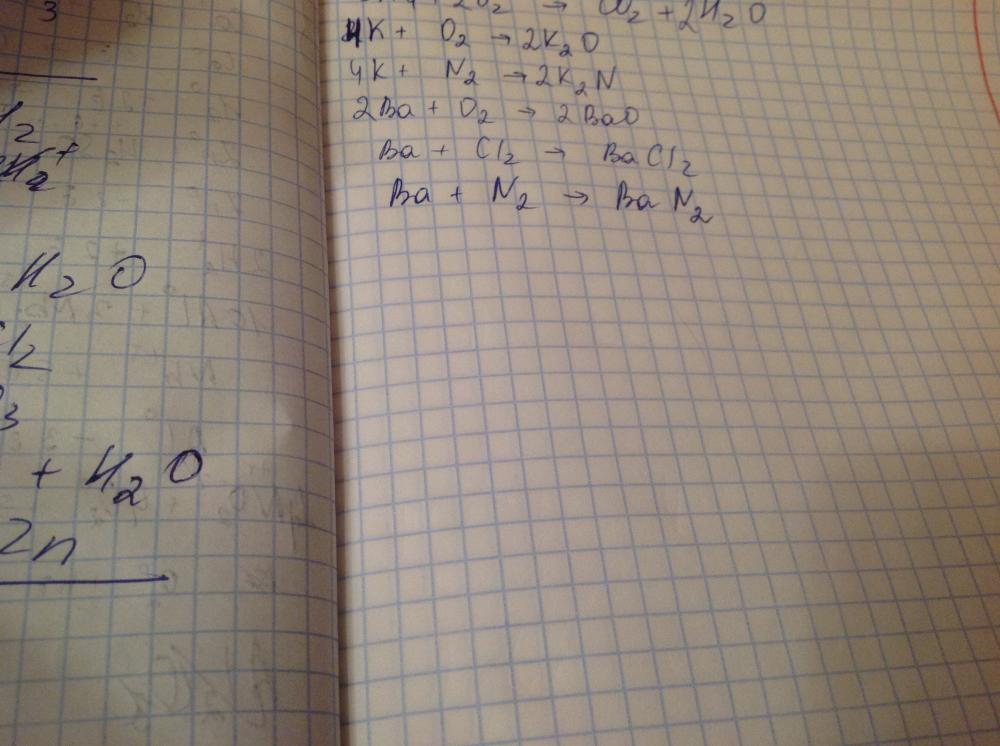 3
H₂O
+ H₂O
Zn
+ 2O₂ → CO₂ + 2H₂O
4K + O₂ → 2K₂O
4K + N₂ → 2K₂N
2Ba + O₂ → 2BaO
Ba + Cl₂ → BaCl₂
Ba + N₂ → BaN₂